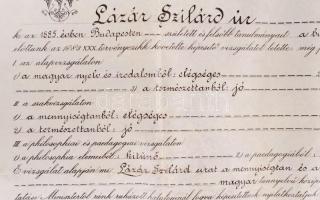 Lázár Szilárd úr
ki az 1885. évben Budapesten született és felsőbb tanulmányait a b
előttünk az 1883 XXX. törvényczikk követelte képesítő vizsgálatot letette, még
I az alapvizsgálaton
1) a magyar nyelv és irodalomból: elégséges
2) a természettanból: jó
II a szakvizsgálaton
1) a mennyiségtanból: elégséges
2) a természettanból: jó
III a philosophiai és paedagogiai vizsgálaton
1) a philosophia elemeiből: kitünő 2) a paedagogiából:
E vizsgálat alapján mi Lázár Szilárd urat a mennyiségtan és a
magyar tannyelvű közép